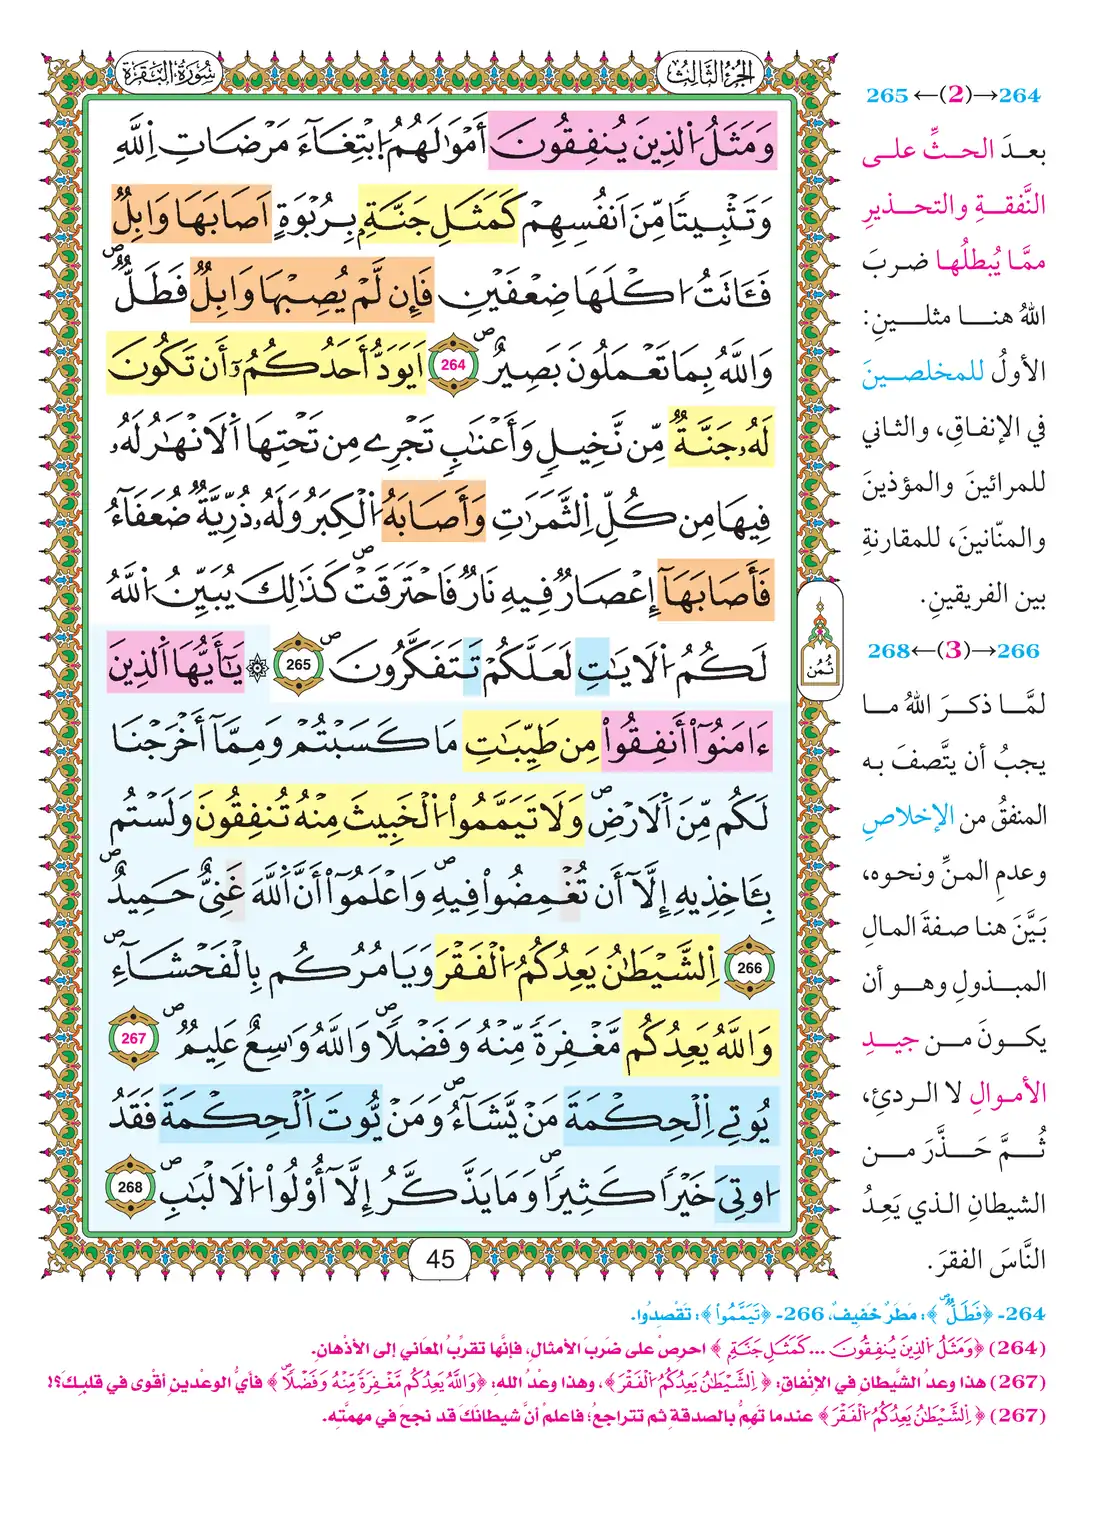 الجزء الثالث
سورة البقرة
وَمَثَلُ اُ۬لذِينَ يُنفِقُونَ أَمْوَٰلَهُمُ اُ۪بْتِغَآءَ مَرْضَاتِ اِ۬للَّهِ
وَتَثْبِيتًا مِّنَ اَنفُسِهِمْ كَمَثَلِ جَنَّةِۢ بِرُبْوَةٍ اَصَابَهَا وَابِلٌ
فَـَٔاتَتُ ا۟كْلَهَا ضِعْفَيْنِ فَإِن لَّمْ يُصِبْهَا وَابِلٌ فَطَلٌّ
وَاللَّهُ بِمَا تَعْمَلُونَ بَصِيرٌ 264 اَيَوَدُّ أَحَدُكُمُۥٓ أَن تَكُونَ
لَهُۥ جَنَّةٌ مِّن نَّخِيلٍ وَأَعْنَابٍ تَجْرِے مِن تَحْتِهَا اَ۬لَانْهَٰرُ لَهُۥ
فِيهَا مِن كُلِّ اِ۬لثَّمَرَٰتِ وَأَصَابَهُ اُ۬لْكِبَرُ وَلَهُۥ ذُرِّيَّةٌ ضُعَفَآءُ
فَأَصَابَهَآ إِعْصَارٌ فِيهِ نَارٌ فَاحْتَرَقَتْ كَذَٰلِكَ يُبَيِّنُ اُ۬للَّهُ
لَكُمُ اُ۬لَايَٰتِ لَعَلَّكُمْ تَتَفَكَّرُونَ 265 ۞ يَٰٓأَيُّهَا اَ۬لذِينَ
ءَامَنُوٓاْ أَنفِقُواْ مِن طَيِّبَٰتِ مَا كَسَبْتُمْ وَمِمَّآ أَخْرَجْنَا
لَكُم مِّنَ اَ۬لَارْضِ وَلَا تَيَمَّمُواْ اُ۬لْخَبِيثَ مِنْهُ تُنفِقُونَ وَلَسْتُم
بِـَٔاخِذِيهِ إِلَّآ أَن تُغْمِضُواْ فِيهِ وَاعْلَمُوٓاْ أَنَّ اَ۬للَّهَ غَنِيٌّ حَمِيدٌ
266 اِ۬لشَّيْطَٰنُ يَعِدُكُمُ اُ۬لْفَقْرَ وَيَامُرُكُم بِالْفَحْشَآءِ
وَاللَّهُ يَعِدُكُم مَّغْفِرَةً مِّنْهُ وَفَضْلًا وَاللَّهُ وَٰسِعٌ عَلِيمٌ 267
يُوتِے اِ۬لْحِكْمَةَ مَنْ يَّشَآءُ وَمَنْ يُّوتَ اَ۬لْحِكْمَةَ فَقَدُ
ا۟وتِيَ خَيْرًا كَثِيرًا وَمَا يَذَّكَّرُ إِلَّآ أُوْلُواْ اُ۬لَالْبَٰبِ 268
ثُمُن
45
264→(2)←265
بعدَ الحثِّ على
النَّفقةِ والتحذيرِ
ممَّا يُبطلُها ضربَ
اللهُ هنا مثلينِ:
الأولُ للمخلصينَ
في الإنفاقِ، والثاني
للمرائينَ والمؤذينَ
والمنّانينَ، للمقارنةِ
بين الفريقينِ.
266→(3)←268
لمَّا ذكرَ اللهُ ما
يجبُ أن يتَّصفَ به
المنفقُ من الإخلاصِ
وعدمِ المنِّ ونحوه،
بَيَّنَ هنا صفةَ المالِ
المبذولِ وهو أن
يكونَ من جيدِ
الأموالِ لا الرديءِ،
ثُمَّ حَذَّرَ من
الشيطانِ الذي يَعِدُ
النَّاسَ الفقرَ.
264- ﴿فَطَلٌّ﴾: مَطَرٌ خَفِيفٌ، 266- ﴿تَيَمَّمُواْ﴾: تَقْصِدُوا.
(264) ﴿وَمَثَلُ اُ۬لذِينَ يُنفِقُونَ ... كَمَثَلِ جَنَّةٍ﴾ احرصْ على ضَربَ الأمثالِ، فإنَّها تقرِّبُ المعَاني إلى الأذْهانِ.
(267) هذا وعدُ الشَّيطانِ في الإنفاقِ: ﴿اِ۬لشَّيْطَٰنُ يَعِدُكُمُ اُ۬لْفَقْرَ﴾، وهذا وعدُ اللهِ: ﴿وَاللَّهُ يَعِدُكُم مَّغْفِرَةً مِّنْهُ وَفَضْلًا﴾ فأيُّ الوعدينِ أقوى في قلبِكَ؟!
(267) ﴿اِ۬لشَّيْطَٰنُ يَعِدُكُمُ اُ۬لْفَقْرَ﴾ عندما تَهِمُّ بالصدقةِ ثم تتراجعُ؛ فاعلمْ أنَّ شيطانَكَ قد نجحَ في مهمَّتِه.